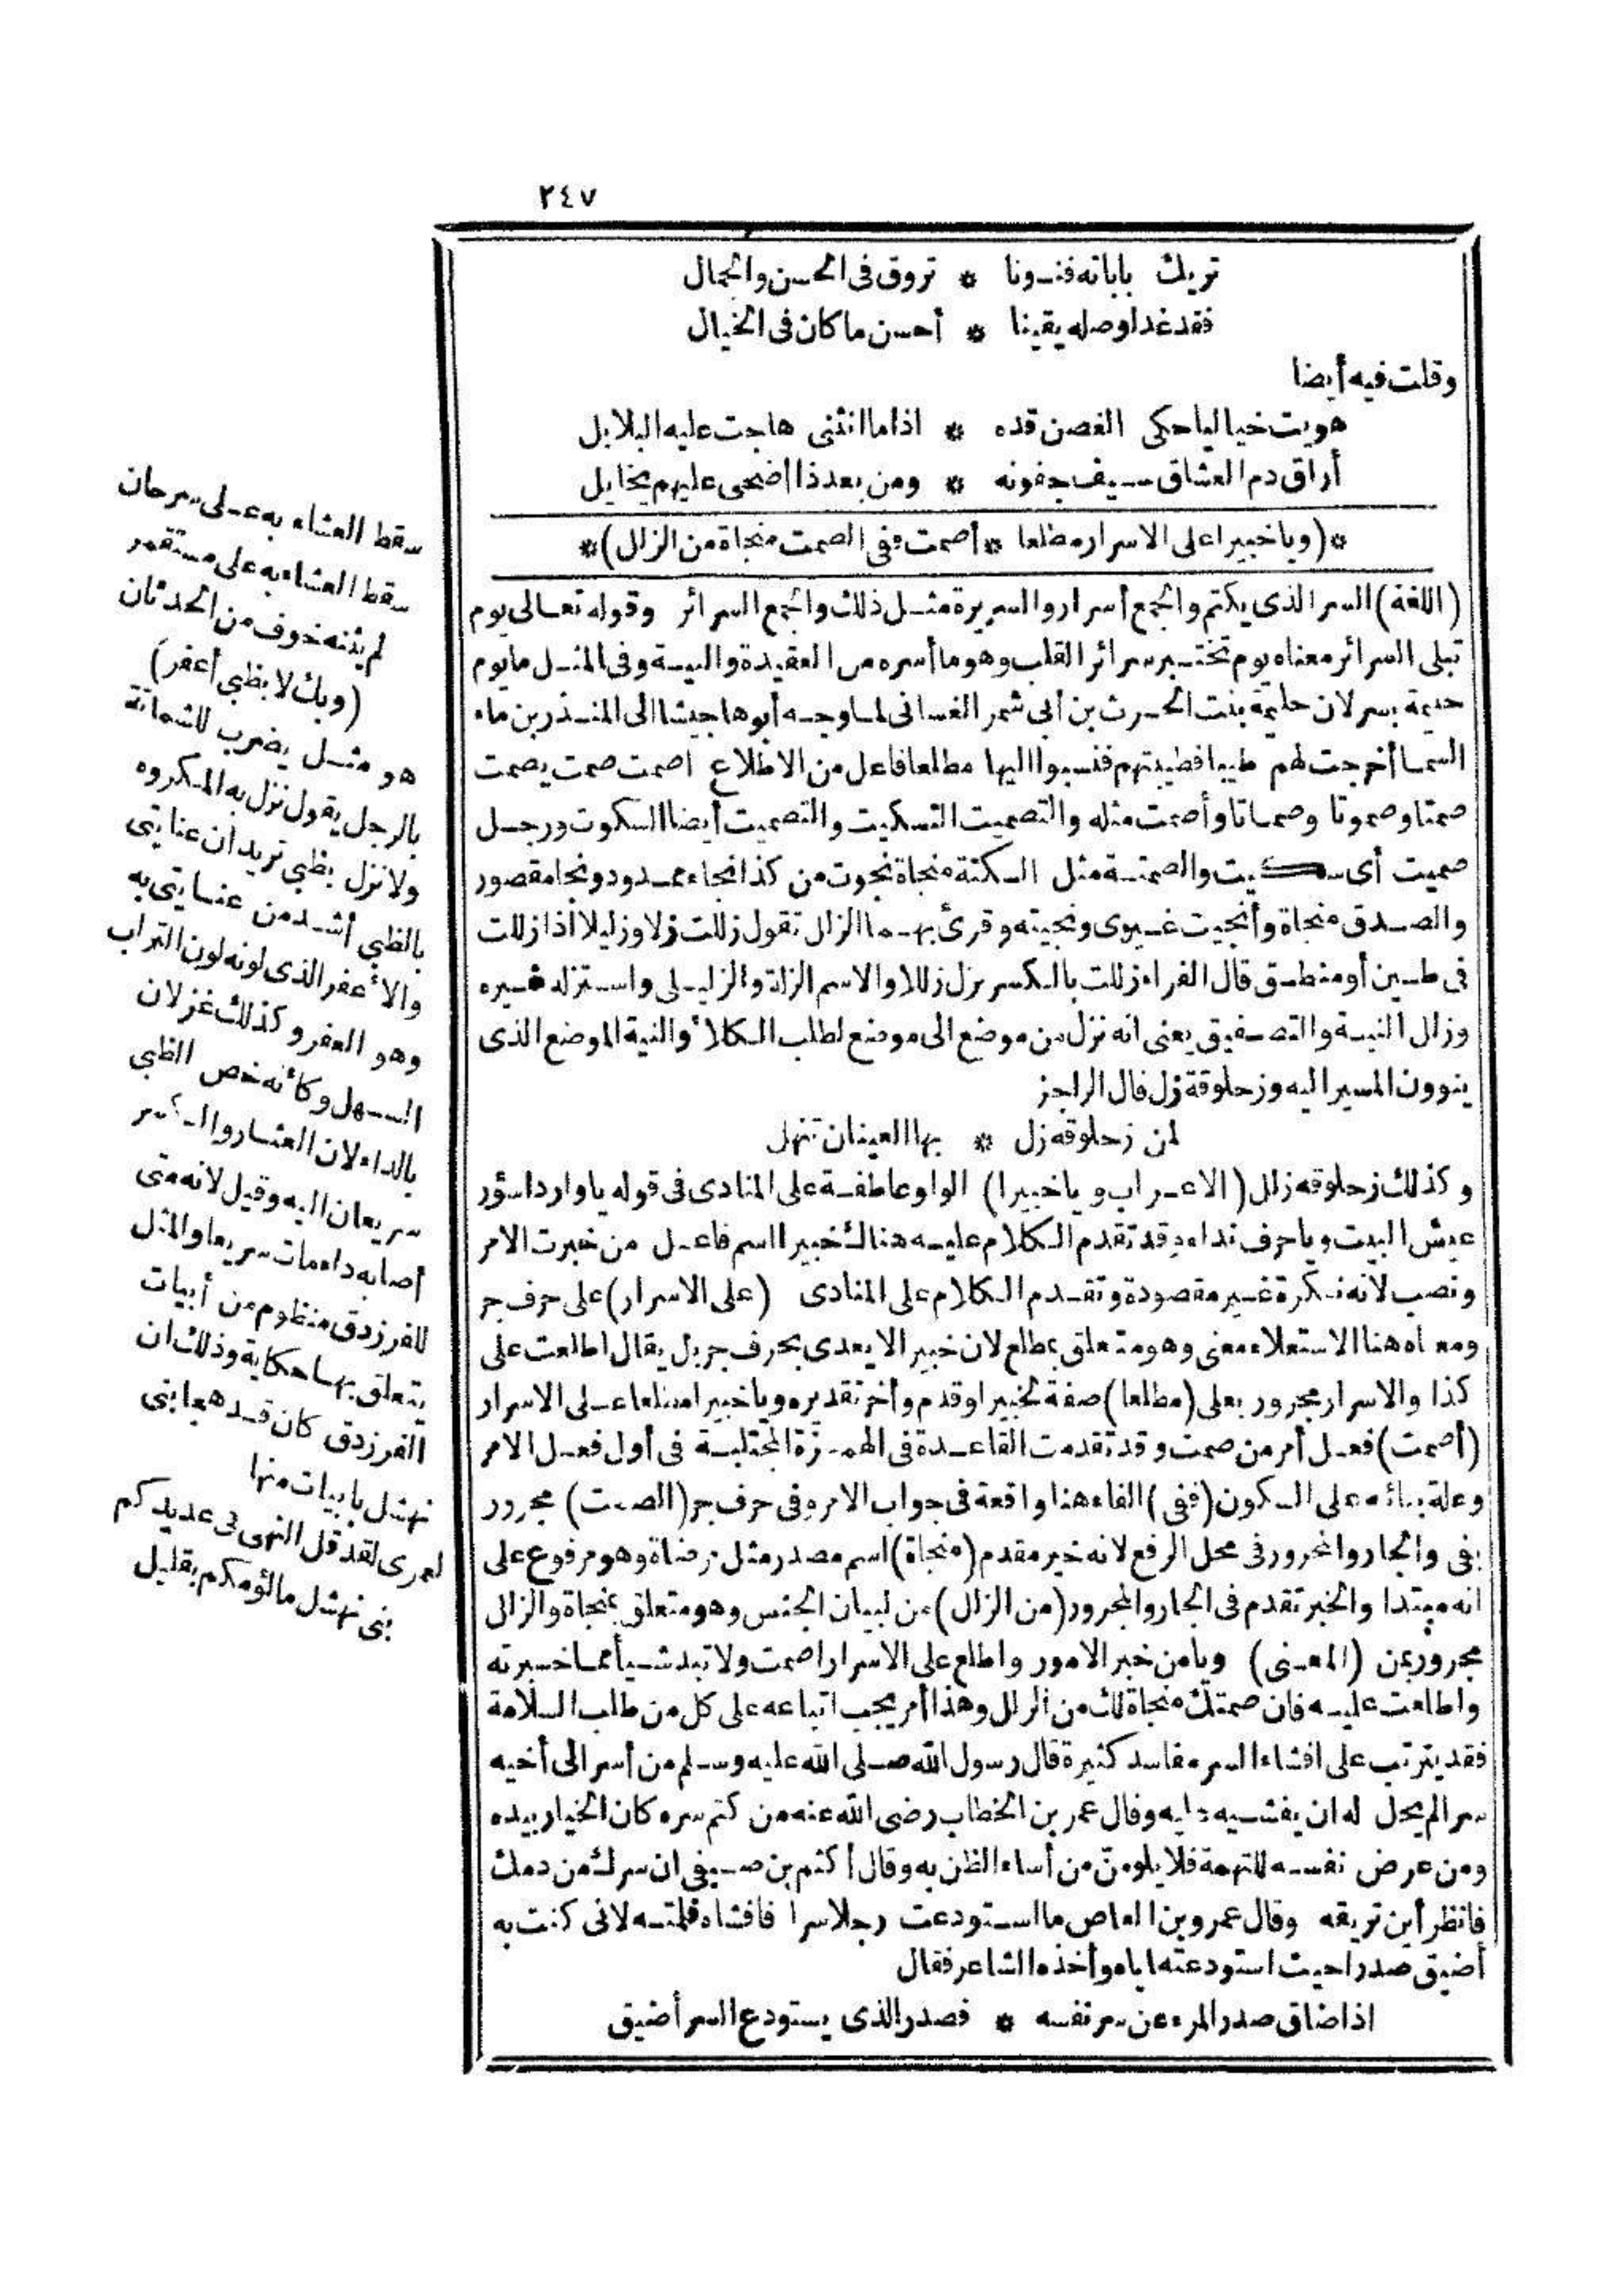 ٢٤٧
تريك باباته فنونا * تروق فى الحسن والجمال
فقد غدا وصله يقينا * أحسن ما كان فى الخيال
وقلت فيه أيضا
هويت خياليا حكى الغصن قده * اذا ما انثنى هاجت عليه البلابل
أراق دم العشاق سيف جفونه * ومن بعد ذا أضحى عليهم يخايل
*(ويا خبيرا على الاسرار مطلعا * أصمت ففى الصمت منجاة من الزلل)*
(اللغة) السر الذى يكتم والجمع أسرار والسريرة مثل ذلك والجمع السرائر وقوله تعالى يوم
تبلى السرائر معناه يوم تختبر سرائر القلب وهو ما أسره من العقيدة والنية وفى المثل ما يوم
حليمة بسر لان حليمة بنت الحرث بن أبى شمر الغسانى لما وجه أبوها جيشا الى المنذر بن ماء
السما أخرجت لهم طيبا فطيبتهم فنسبوا اليها مطلعا فاعل من الاطلاع اصمت صمت يصمت
صمتا وصموتا وصماتا وأصمت مثله والتصميت التسكيت والتصميت أيضا السكوت ورجل
صميت أى سكيت والصمتة مثل السكتة منجاة نجوت من كذا نجاء ممدود ونجا مقصور
والصدق منجاة وأنجيت غيرى ونجيته وقرئ بهما الزلل تقول زللت زلا وزليلا اذا زللت
فى طين أو منطق قال الفراء زللت بالكسر يزل زللا والاسم الزلة والزليلى واستزله غيره
وزال النية والتصفيق يعنى انه نزل من موضع الى موضع لطلب الكلأ والنية الموضع الذى
ينوون المسير اليه وزحلوقة زل قال الراجز
لمن زحلوقه زل * بها العينان تنهل
وكذلك زحلوقه زلل (الاعراب ويا خبيرا) الواو عاطفة على المنادى فى قوله يا واردا سؤر
عيش البيت ويا حرف نداء وقد تقدم الكلام عليه هنالك خبيرا اسم فاعل من خبرت الامر
ونصب لانه نكرة غير مقصودة وتقدم الكلام على المنادى (على الاسرار) على حرف جر
ومعناه هنا الاستعلاء معنى وهو متعلق بمطلع لان خبيرا لا يعدى بحرف جر بل يقال اطلعت على
كذا والاسرار مجرور بعلى (مطلعا) صفة لخبيرا وقدم وأخر تقديره ويا خبيرا مطلعا على الاسرار
(أصمت) فعل أمر من صمت وقد تقدمت القاعدة فى الهمزة المجتلبة فى أول فعل الامر
وعلة بنائه على السكون (ففى) الفاء هنا واقعة فى جواب الامر وفى حرف جر (الصمت) مجرور
بفى والجار والمجرور فى محل الرفع لانه خبر مقدم (منجاة) اسم مصدر مثل مرضاة وهو مرفوع على
انه مبتدا والخبر تقدم فى الجار والمجرور (من الزلل) من لبيان الجنس وهو متعلق بمنجاة والزلل
مجرور بمن (المعنى) ويا من خبر الامور واطلع على الاسرار اصمت ولا تبد شيأ مما خبرته
واطلعت عليه فان صمتك منجاة لك من الزلل وهذا أمر يجب اتباعه على كل من طلب السلامة
فقد يترتب على افشاء السر مفاسد كثيرة قال رسول الله صلى الله عليه وسلم من أسر الى أخيه
سرا لم يحل له ان يفشيه عليه وقال عمر بن الخطاب رضى الله عنه من كتم سره كان الخيار بيده
ومن عرض نفسه للتهمة فلا يلومنّ من أساء الظن به وقال أكثم بن صيفى ان سرك من دمك
فانظر أين تريقه وقال عمرو بن العاص ما استودعت رجلا سرا فافشاه فلمته لانى كنت به
أضيق صدرا حيث استودعته اياه وأخذه الشاعر فقال
اذا ضاق صدر المرء عن سر نفسه * فصدر الذى يستودع السر أضيق
سقط العشاء به على سرحان
سقط العشاء به على مستقمر
لم يثنه خوف من الحدثان
(وبك لا بظبي أعفر)
هو مثل يضرب للشماتة
بالرجل يقول نزل به المكروه
ولا نزل بظبي تريد ان عنايتى
بالظبي أشد من عنايتى به
والأعفر الذى لونه لون التراب
وهو العفر وكذلك غزلان
السهل وكأنه خص الظبى
بالداء لان العثار والكسر
سريعان اليه وقيل لانه متى
أصابه داء مات سريعا والمثل
للفرزدق منظوم من أبيات
يتعلق بها حكاية وذلك ان
الفرزدق كان قد هجا بنى
نهشل بابيات منها
لعمرى لقد قل النهى فى عديدكم
بنى نهشل ما لؤمكم بقليل